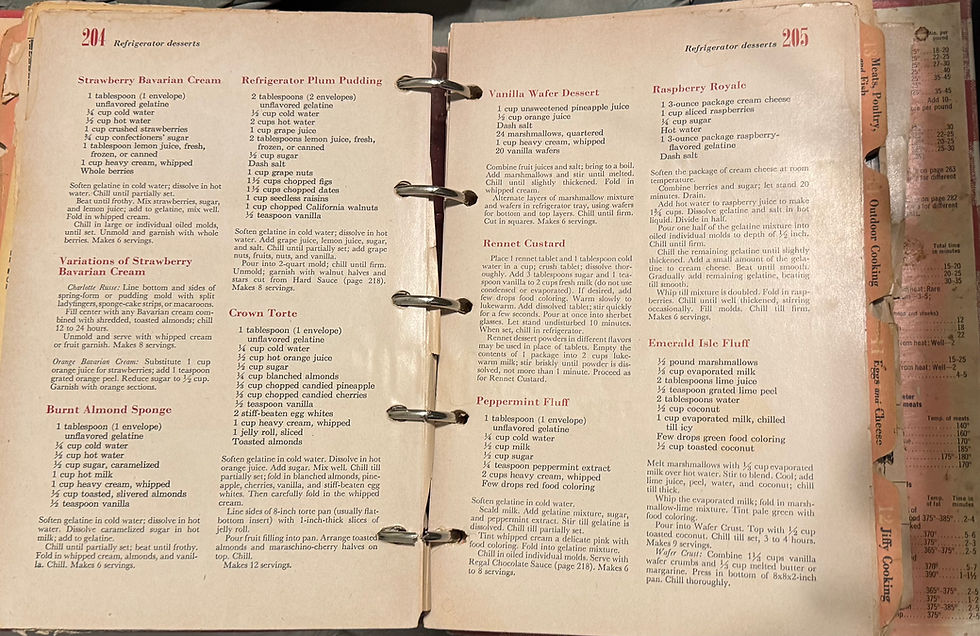 204 Refrigerator desserts
Strawberry Bavarian Cream
1 tablespoon (1 envelope)
unflavored gelatine
¼ cup cold water
½ cup hot water
1 cup crushed strawberries
¾ cup confectioners' sugar
1 tablespoon lemon juice, fresh,
frozen, or canned
1 cup heavy cream, whipped
Whole berries
Soften gelatine in cold water; dissolve in hot
water. Chill until partially set.
Beat until frothy. Mix strawberries, sugar,
and lemon juice; add to gelatine, mix well.
Fold in whipped cream.
Chill in large or individual oiled molds,
until set. Unmold and garnish with whole
berries. Makes 6 servings.
Variations of Strawberry
Bavarian Cream
Charlotte Russe: Line bottom and sides of
spring-form or pudding mold with split
ladyfingers, sponge-cake strips, or macaroons.
Fill center with any Bavarian cream com-
bined with shredded, toasted almonds; chill
12 to 24 hours.
Unmold and serve with whipped cream
or fruit garnish. Makes 8 servings.
Orange Bavarian Cream: Substitute 1 cup
orange juice for strawberries; add 1 teaspoon
grated orange peel. Reduce sugar to ½ cup.
Garnish with orange sections.
Burnt Almond Sponge
1 tablespoon (1 envelope)
unflavored gelatine
¼ cup cold water
½ cup hot water
½ cup sugar, caramelized
1 cup hot milk
1 cup heavy cream, whipped
½ cup toasted, slivered almonds
½ teaspoon vanilla
Soften gelatine in cold water; dissolve in hot
water. Dissolve caramelized sugar in hot
milk; add to gelatine.
Chill until partially set; beat until frothy.
Fold in whipped cream, almonds, and vanil-
la. Chill. Makes 6 servings.
Refrigerator Plum Pudding
2 tablespoons (2 envelopes)
unflavored gelatine
½ cup cold water
2 cups hot water
1 cup grape juice
2 tablespoons lemon juice, fresh,
frozen, or canned
½ cup sugar
Dash salt
1 cup grape nuts
1½ cups chopped figs
1½ cups chopped dates
1 cup seedless raisins
1 cup chopped California walnuts
½ teaspoon vanilla
Soften gelatine in cold water; dissolve in hot
water. Add grape juice, lemon juice, sugar,
and salt. Chill until partially set; add grape
nuts, fruits, nuts, and vanilla.
Pour into 2-quart mold; chill until firm.
Unmold; garnish with walnut halves and
stars cut from Hard Sauce (page 218).
Makes 8 servings.
Crown Torte
1 tablespoon (1 envelope)
unflavored gelatine
¼ cup cold water
½ cup hot orange juice
½ cup sugar
¼ cup blanched almonds
½ cup chopped candied pineapple
½ cup chopped candied cherries
½ teaspoon vanilla
2 stiff-beaten egg whites
1 cup heavy cream, whipped
1 jelly roll, sliced
Toasted almonds
Soften gelatine in cold water. Dissolve in hot
orange juice. Add sugar. Mix well. Chill till
partially set; fold in blanched almonds, pine-
apple, cherries, vanilla, and stiff-beaten egg
whites. Then carefully fold in the whipped
cream.
Line sides of 8-inch torte pan (usually flat-
bottom insert) with 1-inch-thick slices of
jelly roll.
Pour fruit filling into pan. Arrange toasted
almonds and maraschino-cherry halves on
top. Chill.
Makes 12 servings.
Refrigerator desserts 205
Vanilla Wafer Dessert
1 cup unsweetened pineapple juice
½ cup orange juice
Dash salt
24 marshmallows, quartered
1 cup heavy cream, whipped
20 vanilla wafers
Combine fruit juices and salt; bring to a boil.
Add marshmallows and stir until melted.
Chill until slightly thickened. Fold in
whipped cream.
Alternate layers of marshmallow mixture
and wafers in refrigerator tray, using wafers
for bottom and top layers. Chill until firm.
Cut in squares. Makes 6 servings.
Rennet Custard
Place 1 rennet tablet and 1 tablespoon cold
water in a cup; crush tablet; dissolve thor-
oughly. Add 3 tablespoons sugar and 1 tea-
spoon vanilla to 2 cups fresh milk (do not use
condensed or evaporated). If desired, add
few drops food coloring. Warm slowly to
lukewarm. Add dissolved tablet; stir quickly
for a few seconds. Pour at once into sherbet
glasses. Let stand undisturbed 10 minutes.
When set, chill in refrigerator.
Rennet dessert powders in different flavors
may be used in place of tablets. Empty the
contents of 1 package into 2 cups luke-
warm milk; stir briskly until powder is dis-
solved, not more than 1 minute. Proceed as
for Rennet Custard.
Peppermint Fluff
1 tablespoon (1 envelope)
unflavored gelatine
¼ cup cold water
½ cup milk
½ cup sugar
¼ teaspoon peppermint extract
2 cups heavy cream, whipped
Few drops red food coloring
Soften gelatine in cold water.
Scald milk. Add gelatine mixture, sugar,
and peppermint extract. Stir till gelatine is
dissolved. Chill till partially set.
Tint whipped cream a delicate pink with
food coloring. Fold into gelatine mixture.
Chill in oiled individual molds. Serve with
Regal Chocolate Sauce (page 218). Makes 6
to 8 servings.
Raspberry Royale
1 3-ounce package cream cheese
1 cup sliced raspberries
¼ cup sugar
Hot water
1 3-ounce package raspberry-
flavored gelatine
Dash salt
Soften the package of cream cheese at room
temperature.
Combine berries and sugar; let stand 20
minutes. Drain.
Add hot water to raspberry juice to make
1¾ cups. Dissolve gelatine and salt in hot
liquid. Divide in half.
Pour one half of the gelatine mixture into
oiled individual molds to depth of ½ inch.
Chill until firm.
Chill the remaining gelatine until slightly
thickened. Add a small amount of the gela-
tine to cream cheese. Beat until smooth.
Gradually add remaining gelatine, beating
till smooth.
Whip till mixture is doubled. Fold in rasp-
berries. Chill until well thickened, stirring
occasionally. Fill molds. Chill till firm.
Makes 6 servings.
Emerald Isle Fluff
½ pound marshmallows
⅓ cup evaporated milk
2 tablespoons lime juice
½ teaspoon grated lime peel
2 tablespoons water
½ cup coconut
1 cup evaporated milk, chilled
till icy
Few drops green food coloring
½ cup toasted coconut
Melt marshmallows with ⅓ cup evaporated
milk over hot water. Stir to blend. Cool; add
lime juice, peel, water, and coconut; chill
till thick.
Whip the evaporated milk; fold in marsh-
mallow-lime mixture. Tint pale green with
food coloring.
Pour into Wafer Crust. Top with ½ cup
toasted coconut. Chill till set, 3 to 4 hours.
Makes 9 servings.
Wafer Crust: Combine 1⅓ cups vanilla
wafer crumbs and ⅓ cup melted butter or
margarine. Press in bottom of 8x8x2-inch
pan. Chill thoroughly.
Meats, Poultry,
and Fish
Outdoor Cooking
Eggs and Cheese
Jiffy Cooking
Min. per
pound
18-20
22-25
27-30
40
35-45
35-45
Add 10-
per pound
30
22-25
25-30
on page 263
different
page 282
for different
Total time
in minutes
15-20
20-25
30-35
heat: Rare
12
18
22
heat: Well-2
15-25
from heat: Well-2
4-5
meats
Temp. of meat
140°
160°
170°
170°
185°
175°-180°
170°
Temp.
of fat
Time,
in min.
375°-385°
370°
365°-375°
370°
390°
365°-375°
375°
375°-385°
375°